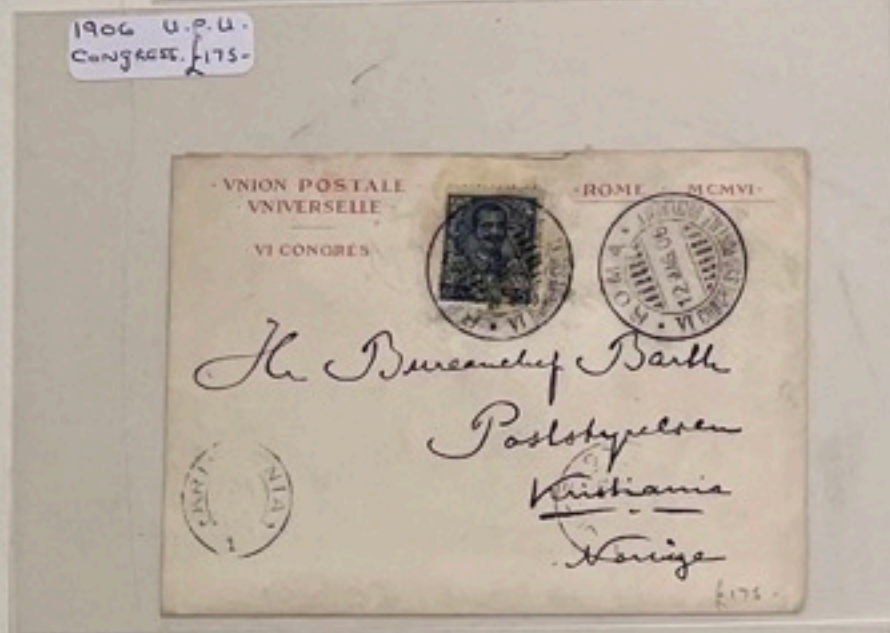 1906 U.P.U.
CONGRESS. £175-
· VNION POSTALE ·
· VNIVERSELLE ·
VI CONGRÈS
· ROME MCMVI ·
ROMA
12 MAG 06
Hr Bureauchef Barth
Poststyrelsen
Kristiania
Norvège
1
£175-